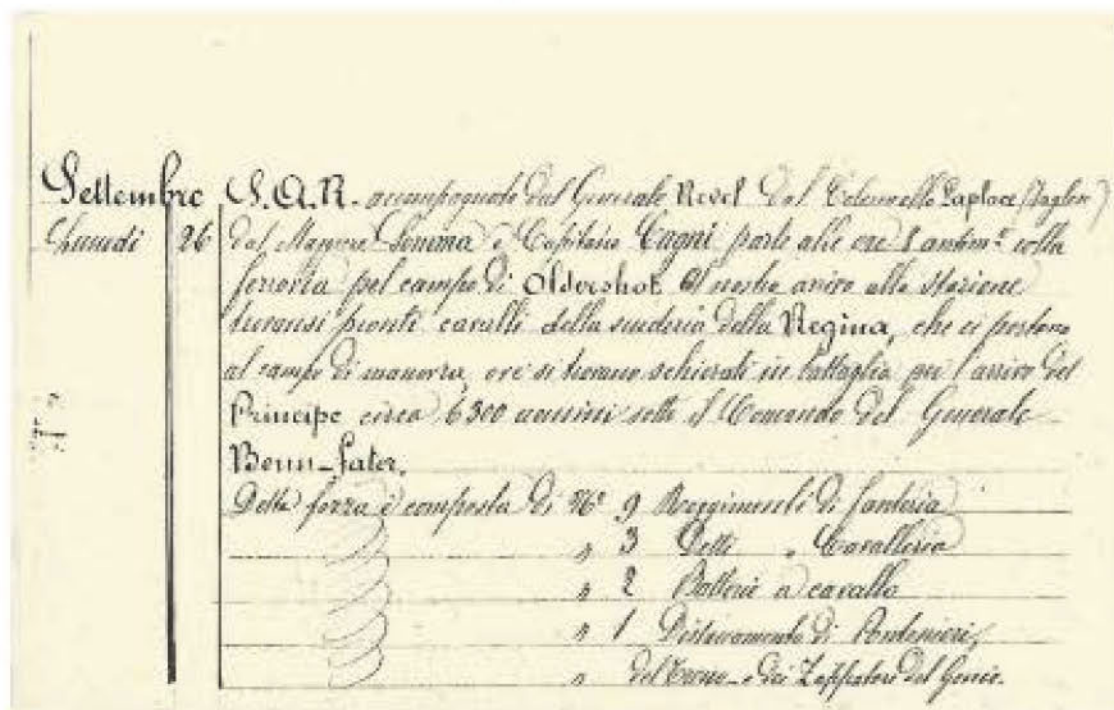 Settembre S.A.R. accompagnato dal Generale Revel dal Colonnello Laplace (Inglese)
Lunedi 26 dal Maggiore Somma e Capitaio Cagni parte alle ore 8 antim.e colla
ferrovia pel campo di Oldershot. Al nostro arrivo alla stazione
pronti cavalli della scuderia della Regina, che ci portano
al campo di manovra, ove si trovano schierati in battaglia per l'arrivo del
Principe circa 6300 uomini sotto il Comando del Generale
Benn-fater.
Detta forza è composta di No 9 Reggimenti di fanteria
" 3 Detti " Cavalleria
" 2 Batterie a cavallo
" 1 Distaccamento di Pontonieri,
" del Treno e dei Zappatori del Genio.